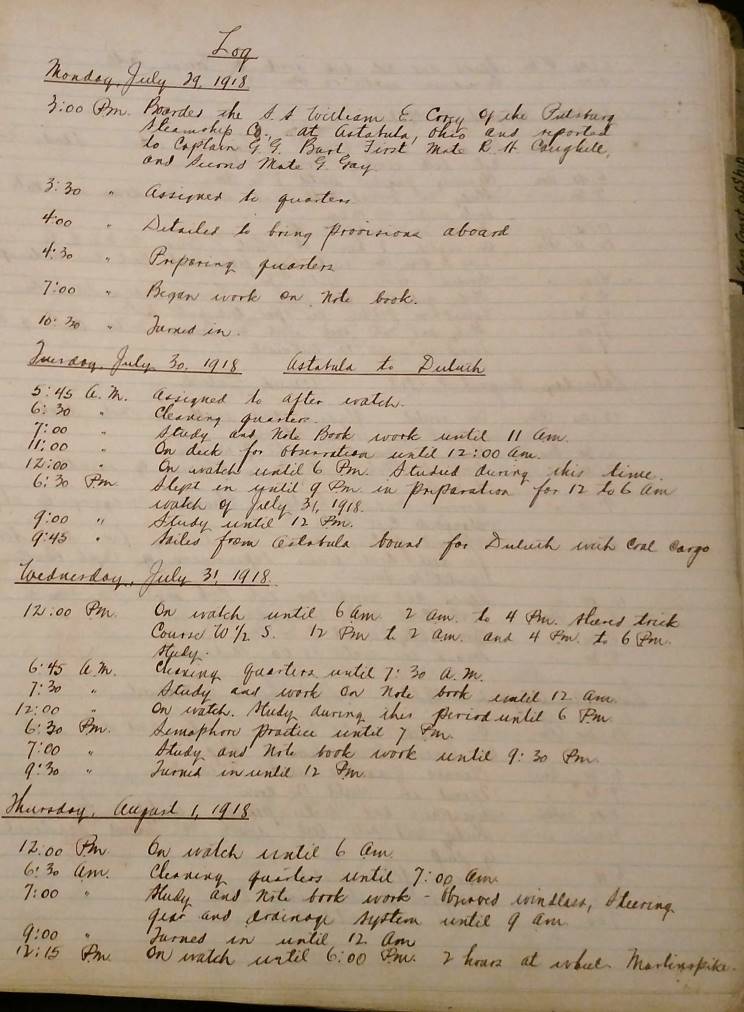 Log
Monday, July 29, 1918
3:00 Pm. Boarded the S.S. William E. Corey of the Pittsburg
Steamship Co., at Astabula, Ohio and reported
to Captain G.G. First Mate R. H.
and Second Mate G. Gay
3:30 " Assigned to quarters
4:00 " Detailed to bring provisions aboard
4:30 " Preparing quarters
7:00 " Began work on Note book.
10:30 " Turned in.
Tuesday, July 30, 1918 Astabula to Duluth
5:45 A.M. Assigned to after watch.
6:30 " Cleaning quarters.
7:00 " Study and Note Book work until 11 am.
11:00 " On deck for observation until 12:00 am.
12:00 " On watch until 6 Pm. Studied during this time.
6:30 Pm. Slept in until 9 Pm. in preparation for 12 to 6 am
watch of July 31, 1918.
9:00 " Study until 12 Pm.
9:45 " Sailed from Astabula bound for Duluth with Coal Cargo
Wednesday, July 31, 1918.
12:00 Pm. On watch until 6 am. 2 am. to 4 Pm. steered trick
Course W 1/2 S. 12 Pm to 2 am. and 4 Pm. to 6 Pm.
study.
6:45 A.M. Cleaning quarters until 7:30 A.M.
7:30 " Study and work on Note book until 12 am.
12:00 " On watch. Study during this period until 6 Pm.
6:30 Pm. Semaphore practice until 7 Pm.
7:00 " Study and Note book work until 9:30 Pm.
9:30 " Turned in until 12 Pm.
Thursday, August 1, 1918
12:00 Pm. On watch until 6 am.
6:30 am. Cleaning quarters until 7:00 am.
7:00 " Study and Note book work - observed windlass, steering
gear and drainage system until 9 am.
9:00 " Turned in until 12 am
12:15 Pm. On watch until 6:00 Pm. 2 hours at wheel. Marlinspike.